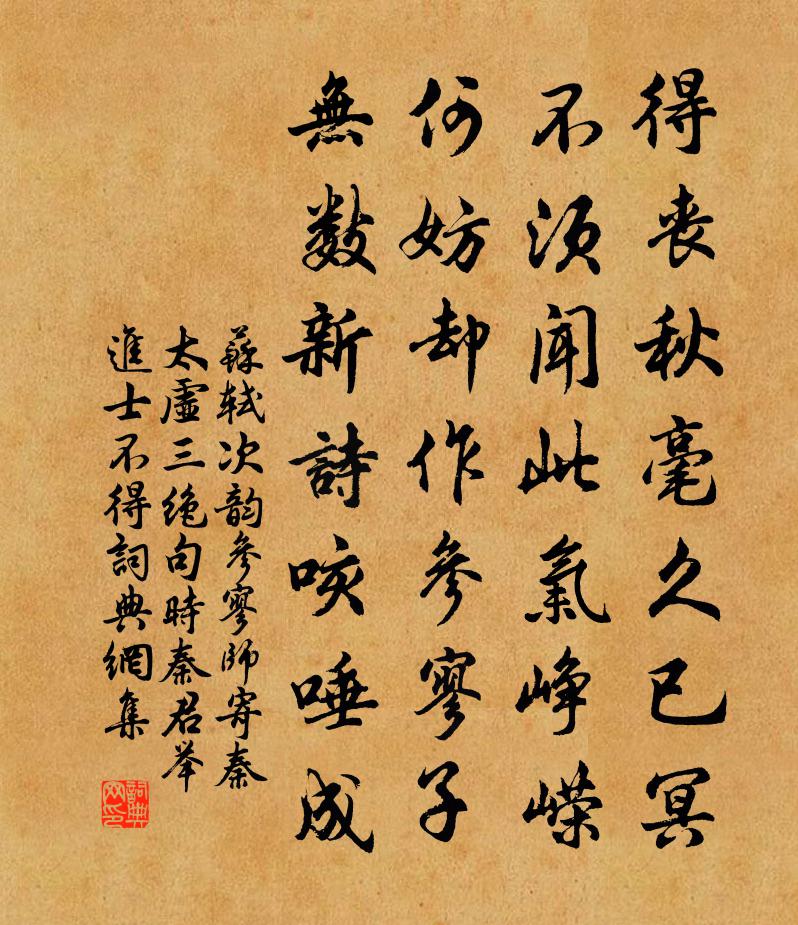 得喪秋毫久已冥
不須聞此氣峥嶸
何妨却作參寥子
無數新詩咳唾成
蘇軾次韵參寥師寄秦
太虛三絶句時秦君举
進士不得詞典網集
詞典网印